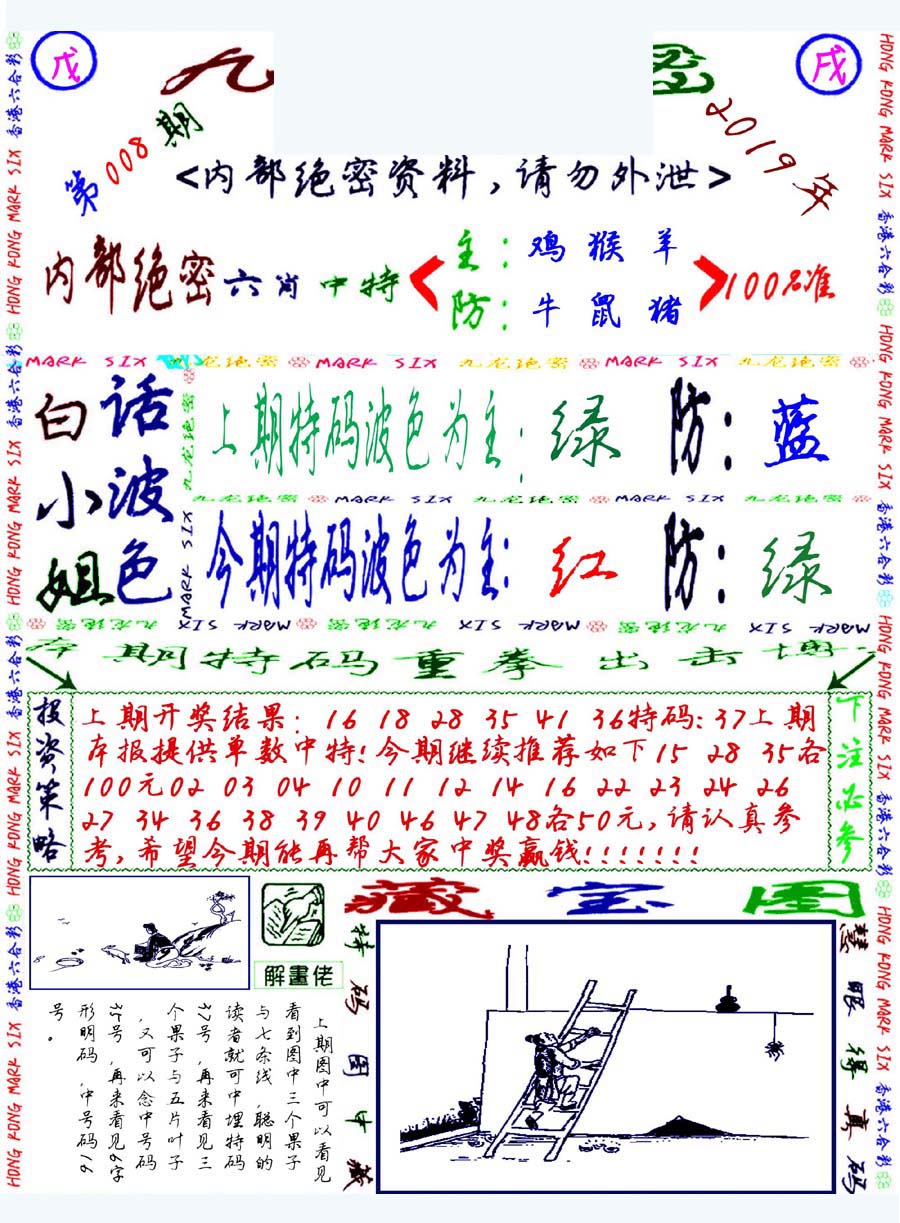 戊
戌
九
密
第008期
2019年
<内部绝密资料,请勿外泄>
内部绝密六肖中特
主:鸡猴羊
防:牛鼠猪
100%准
MARK SIX 九龙绝密 MARK SIX 九龙绝密 MARK SIX 九龙绝密
白小姐
话波色
上期特码波色为主:绿 防:蓝
九龙绝密 MARK SIX 九龙绝密 MARK SIX 九龙绝密
今期特码波色为主:红 防:绿
九龙绝密 MARK SIX
九龙绝密 MARK SIX 九龙绝密 MARK SIX 九龙绝密 MARK SIX
本期特码重拳出击博
投资策略
上期开奖结果: 16 18 28 35 41 36特码:37上期
本报提供单数中特!今期继续推荐如下15 28 35各
100元02 03 04 10 11 12 14 16 22 23 24 26
27 34 36 38 39 40 46 47 48各50元,请认真参
考,希望今期能再帮大家中奖赢钱!!!!!!!
下注必参
藏宝图
解畫佬
上期图中可以看见
看到图中三个果子
与七条线,聪明的
读者就可中埋特码
37号,再来看见三
个果子与五片叶子
,又可以念中号码
35号,再来看见6字
形明码,中号码16
号。
特码图中藏
慧眼得真码
香港六合彩 HONG KONG MARK SIX 香港六合彩 HONG KONG MARK SIX 香港六合彩 HONG KONG MARK SIX 香港六合彩 HONG KONG MARK SIX
HONG KONG MARK SIX 香港六合彩 HONG KONG MARK SIX 香港六合彩 HONG KONG MARK SIX 香港六合彩 HONG KONG MARK SIX 香港六合彩